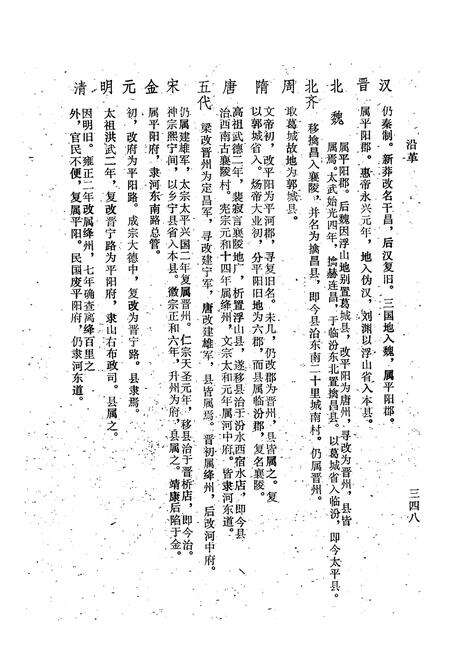 沿革
三四八
汉 仍秦制。新莽改名干昌，后汉复旧。三国地入魏，属平阳郡。
晋 属平阳郡。惠帝永兴元年，地入伪汉，刘渊以浮山省入本县。
北魏 属平阳郡。后魏因浮山地别置葛城县，改平阳为唐州，寻改为晋州，县皆
属焉。太武始光四年，擒赫连昌，于临汾东北置擒昌县。以葛城省入临汾，即今太平县。
北齐 移擒昌入襄陵，并名为擒昌县，即今县治东南二十里城南村。仍属晋州。
周 取葛城故地为郭城县。
隋 文帝初，改平阳为平河郡，寻复旧名。未几，仍改郡为晋州，县皆属之。复
以郭城省入。炀帝大业初，分平阳旧地为六郡，而县属临汾郡，复名襄陵。
唐 高祖武德二年，裴寂言襄陵地广，析置浮山县，遂移县治于汾水西宿水店，即今县
治西南古襄陵村。宪宗元和十四年属绛州，文宗太和元年属河中府。皆隶河东道。
五代 梁改晋州为定昌军，寻改建宁军，唐改建雄军，县皆属焉。晋初属绛州，后改河中府。
宋 仍属建雄军，太宗太平兴国二年复属晋州。仁宗天圣元年，移县治于晋桥店，即今治。
神宗熙宁间，以乡宁县省入本县。徽宗正和六年，升州为府，县属之。靖康后陷于金。
金 属平阳府，隶河东南路总管。
元 初，改府为平阳路。成宗大德中，复改为晋宁路。县隶焉。
明 太祖洪武二年，复改晋宁路为平阳府，隶山右布政司。县属之。
清 因明旧。雍正二年改属绛州，七年确查离绛百里之
外，官民不便，复属平阳。民国废平阳府，仍隶河东道。